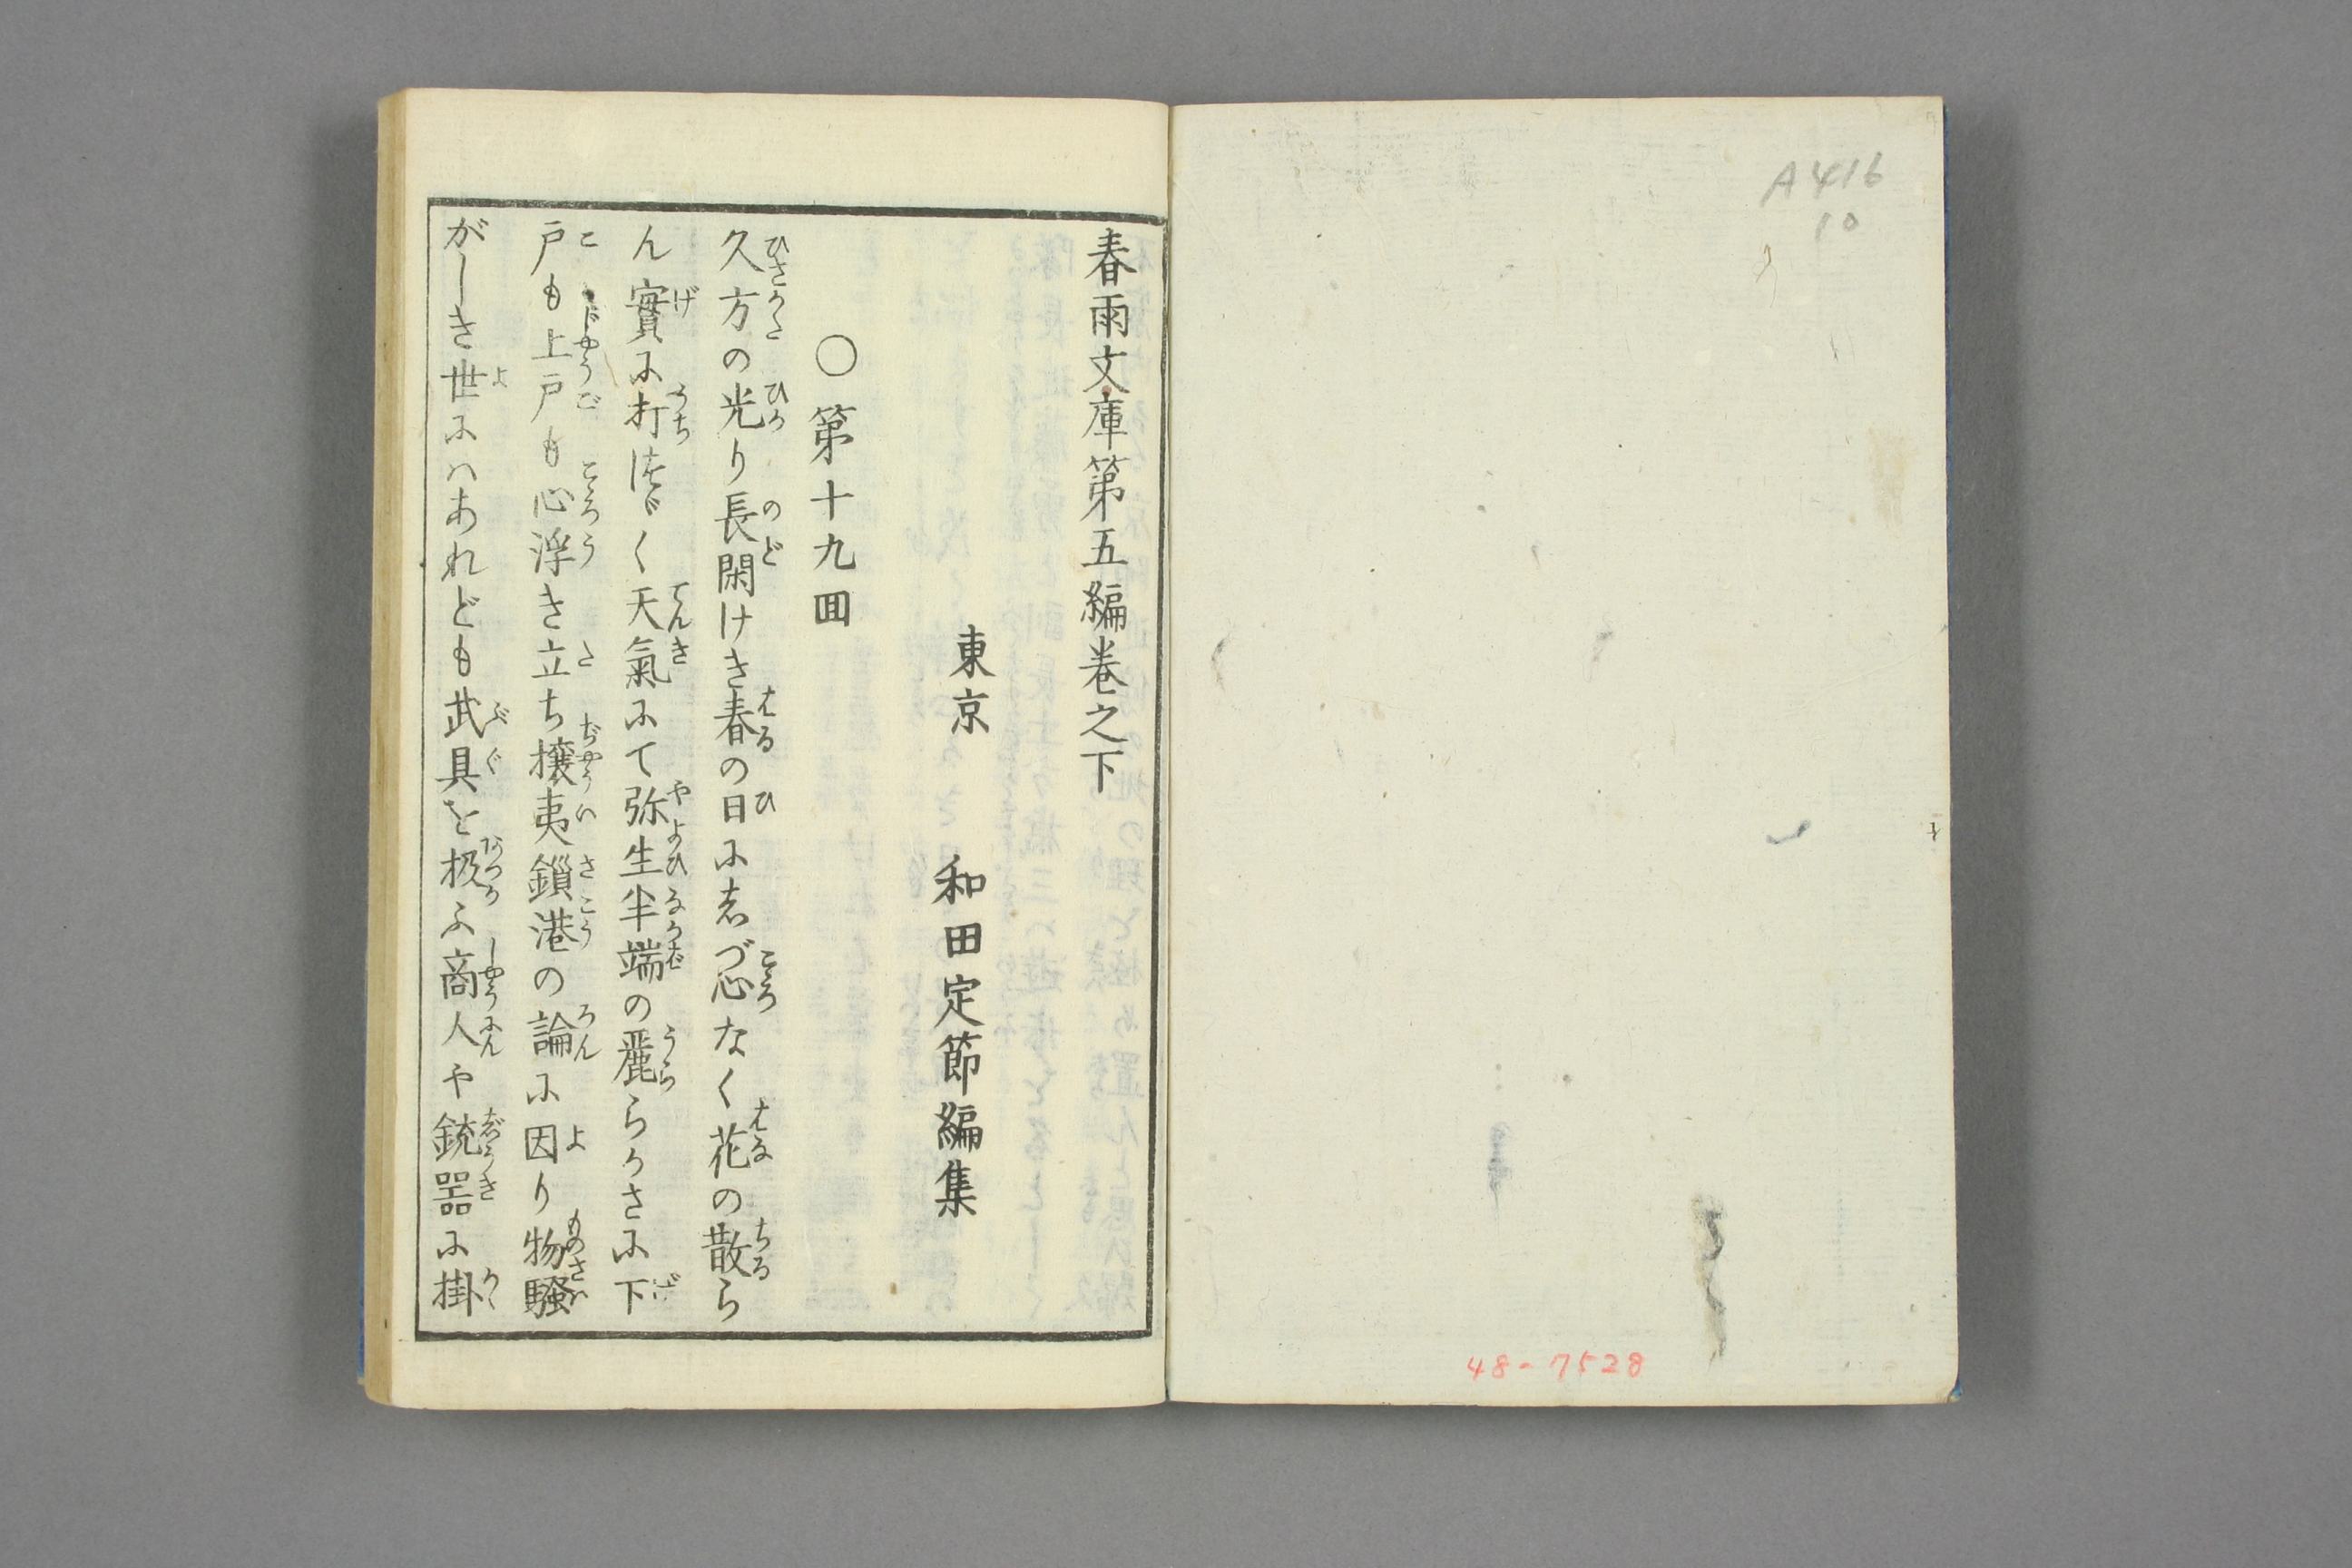 A416
10
48-7528
春雨文庫第五編巻之下
東京 和田定節編集
○第十九囬
久方の光り長閑けき春の日に志づ心なく花の散ら
ん實に打つゞく天氣にて弥生半端の麗らかさに下
戸も上戸も心浮き立ち攘夷鎖港の論に因り物騒
がしき世にハあれども武具を扱ふ商人や銃器に掛